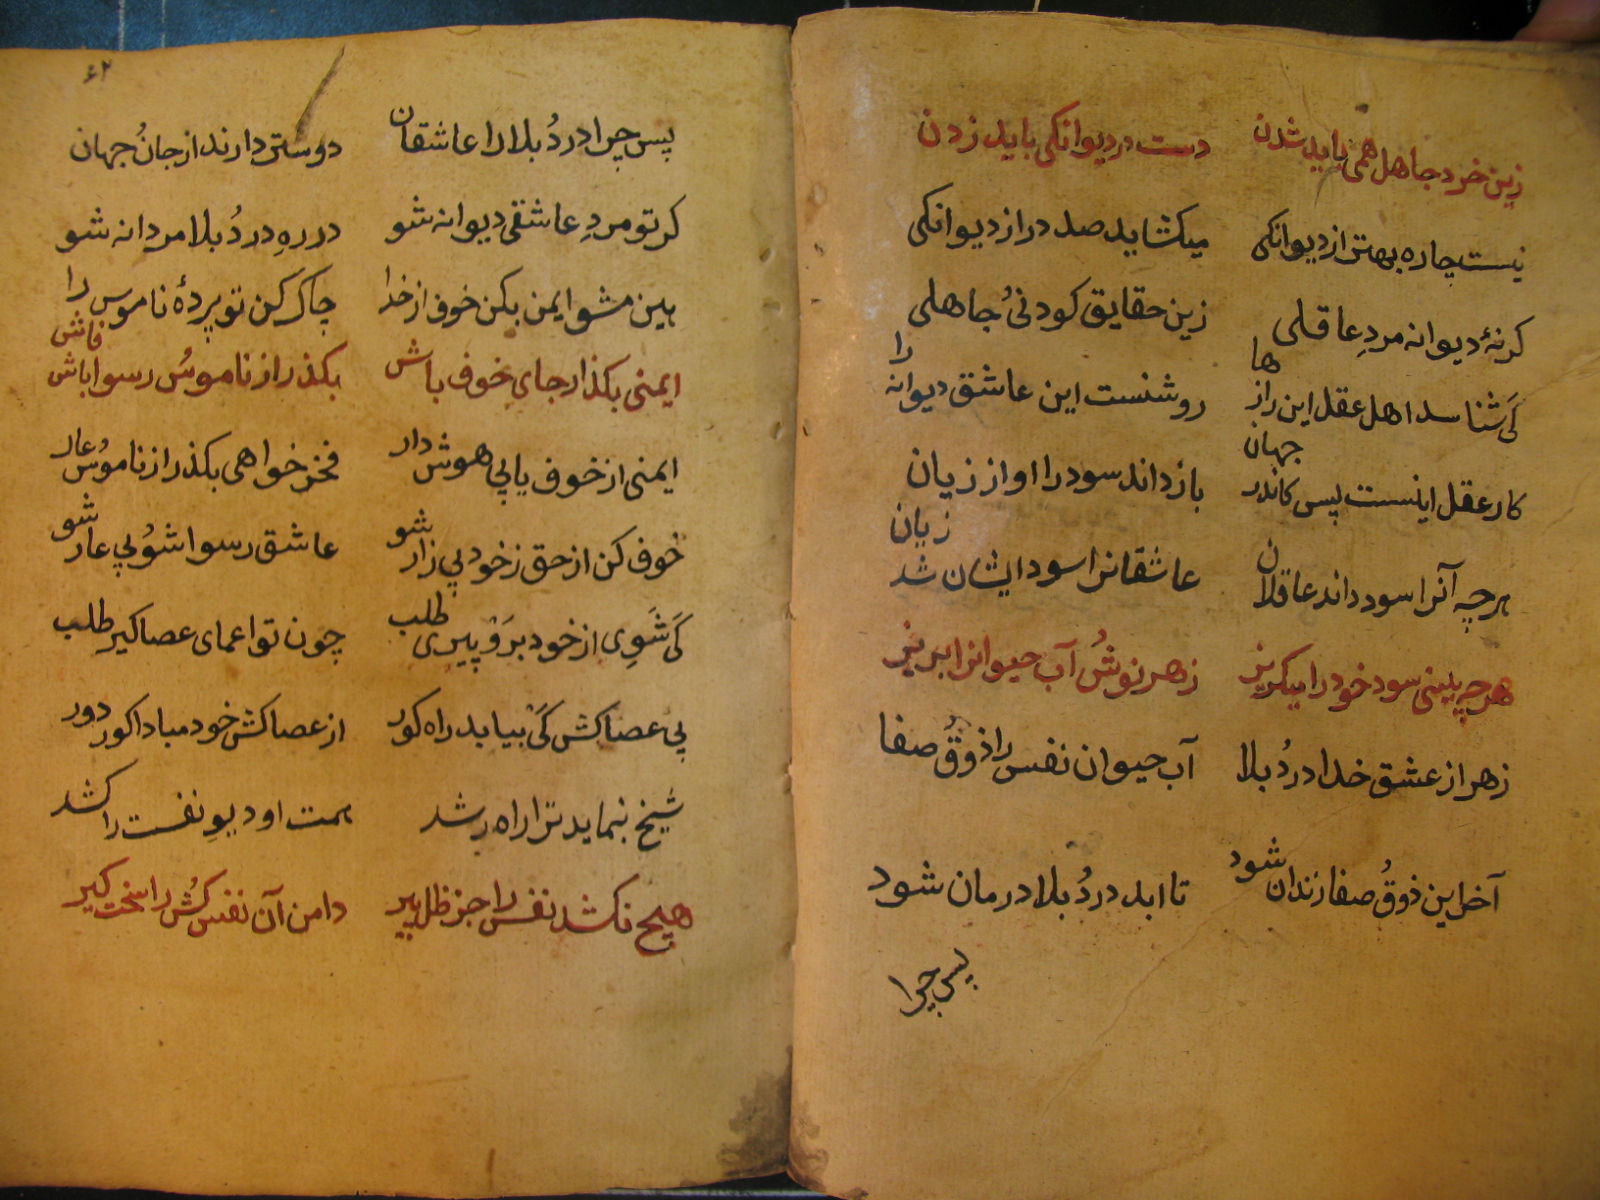 زین خرد جاهل همی باید شدن دست در دیوانکی باید زدن
نیست چاره بهتر از دیوانکی میکشاید صد در از دیوانکی
کر نۀ دیوانه مردِ عاقلی زین حقایق کودنیُ جاهلی
کَی شناسد اهل عقل این رازها روشنست این عاشق دیوانه را
کار عقل اینست پس کاندر جهان باز داند سود را او از زیان
هرچه آنرا سود داند عاقلان عاشقانرا سود ایشان شد زیان
هرچه بینی سود خود را میکریز زهر نوشُ آب حیوانرا بریز
زهر از عشق خدا دردُ بلا آب حیوان نفس را ذوقُ صفا
آخر این ذوقُ صفا زندان شود تا ابد دردُ بلا درمان شود
پس چرا
۶۲
پس چرا دردُ بلا را عاشقان دوستر دارند از جانُ جهان
کر تو مردِ عاشقی دیوانه شو در رهِ دردُ بلا مردانه شو
هین مشو ایمن بکن خوف از خدا چاک کن تو پردۀ ناموس را
ایمنی بکذار جای خوف باش بکذر از ناموسُ رسوا باش فاش
ایمنی از خوف یابی هوش دار فخر خواهی بکذر از ناموسُ عار
خوف کن از حق ز خود بی زار شو عاشق رسوا شوُ بی عار شو
کَی شَوِی از خود برَوْ پیری طلب چون تو اعمای عصاکیر طلب
بی عصاکش کَیْ بیابد راه کور از عصاکش خود مبادا کور دور
شیخ بنماید ترا راه رشد همت او دیوِ نفست را کشد
هیچ نکشد نفس را جز ظل پیر دامن آن نفس کُش را سخت کیر